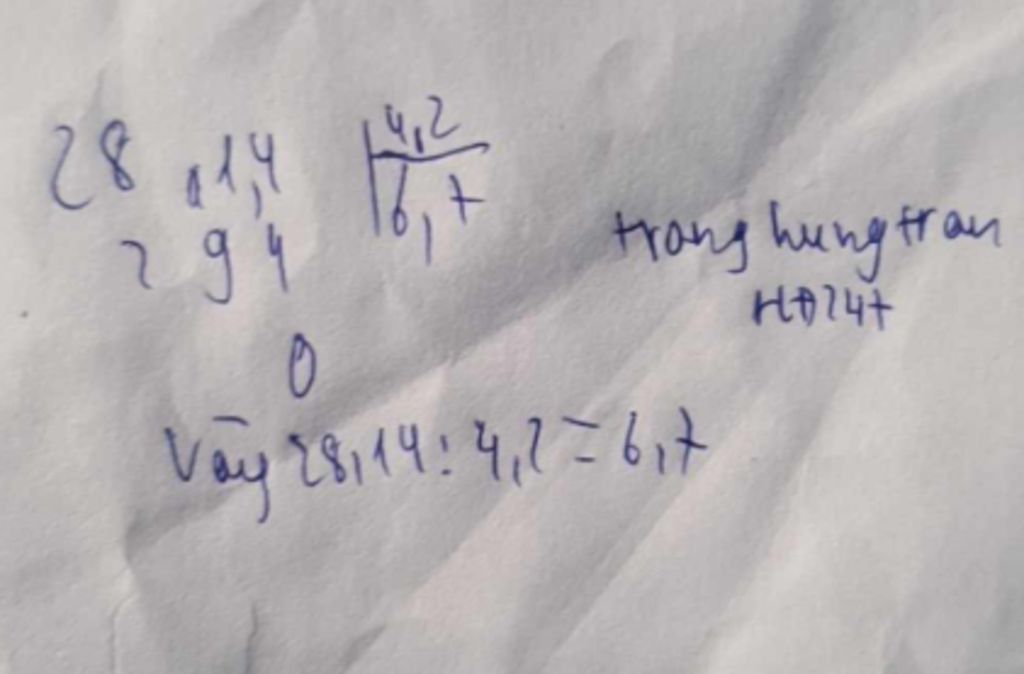 28,1,4 4,2
2 9 4 6,7
tronghungtran
HĐ247
0
Vậy 28,14 : 4,2 = 6,7